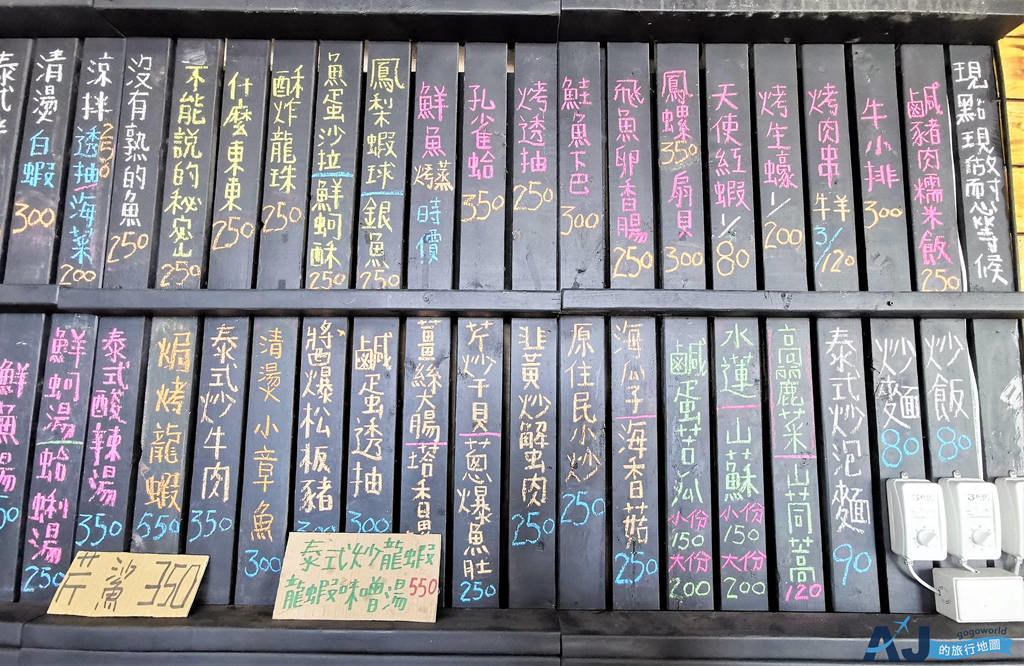 現點現做耐心等候
鹹豬肉糯米飯 250
牛小排 300
烤肉串 牛羊 3/120
烤生蠔 1/200
天使紅蝦 1/80
鳳螺 350 扇貝 300
飛魚卵香腸 250
鮭魚下巴 300
烤透抽 250
孔雀蛤 350
鮮魚 烤蒸 時價
鳳梨蝦球 銀魚 250
魚蛋沙拉 鮮蚵酥 250
酥炸龍珠 250
什麼東東 250
不能說的秘密 250
沒有熟的魚 250
涼拌透抽 250 海菜 200
清燙白蝦 300
泰式
炒飯 80
炒麵 80
泰式炒泡麵 90
高鹿菜 山茼蒿 120
水蓮 山蘇 小份 150 大份 200
鹹蛋苦瓜 小份 150 大份 200
海瓜子 海香菇 250
原住民小炒 250
韭黃炒蟹肉 250
芹炒干貝 蔥爆魚肚 250
薑絲大腸 塔香
鹹蛋透抽 300
醬爆松板豬 300
清燙小章魚 300
泰式炒牛肉 350
焗烤龍蝦 550
泰式酸辣湯 350
鮮蚵湯 蛤蜊湯 250
鮮魚湯
芹鯊 350
泰式炒龍蝦
龍蝦味噌湯 550
AJ的旅行地圖
gogoworld